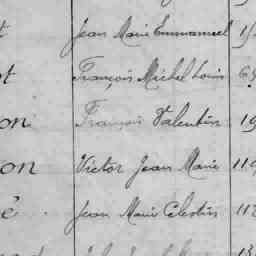 t Jean Marie Emmanuel
st François Michel Louis
on François Valentin 19
on Victor Jean Marie 119
é. Jean Marie Celestin 112